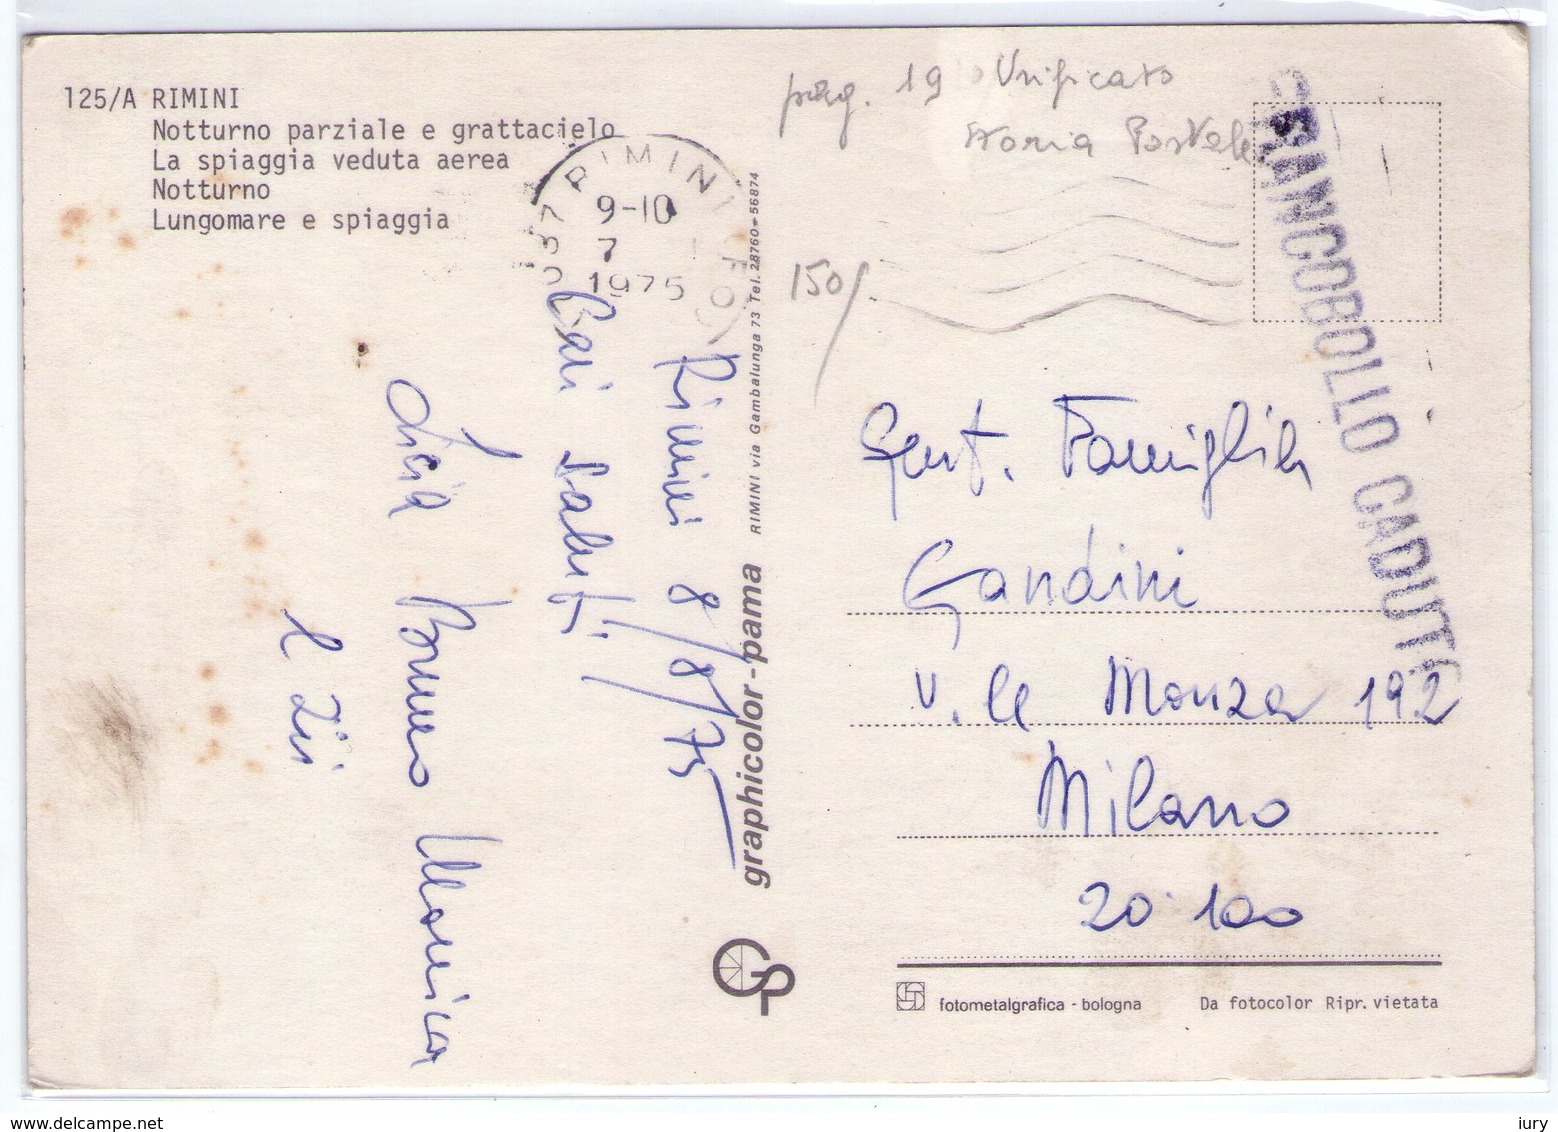 125/A RIMINI
Notturno parziale e grattacielo
La spiaggia veduta aerea
Notturno
Lungomare e spiaggia
RIMINI
9-10
7
1975
pag. 19 Unificato
Storia Postale
150/
FRANCOBOLLO CADUTO
Rimini 8/8/75
Cari saluti
Licia Bruno Monica
e Zii
graphicolor-pama RIMINI via Gambalunga 73 Tel. 28760-56874
Gent. Famiglia
Gandini
V.le Monza 192
Milano
20100
fotometalgrafica - bologna
Da fotocolor Ripr. vietata
www.delcampe.net
iury